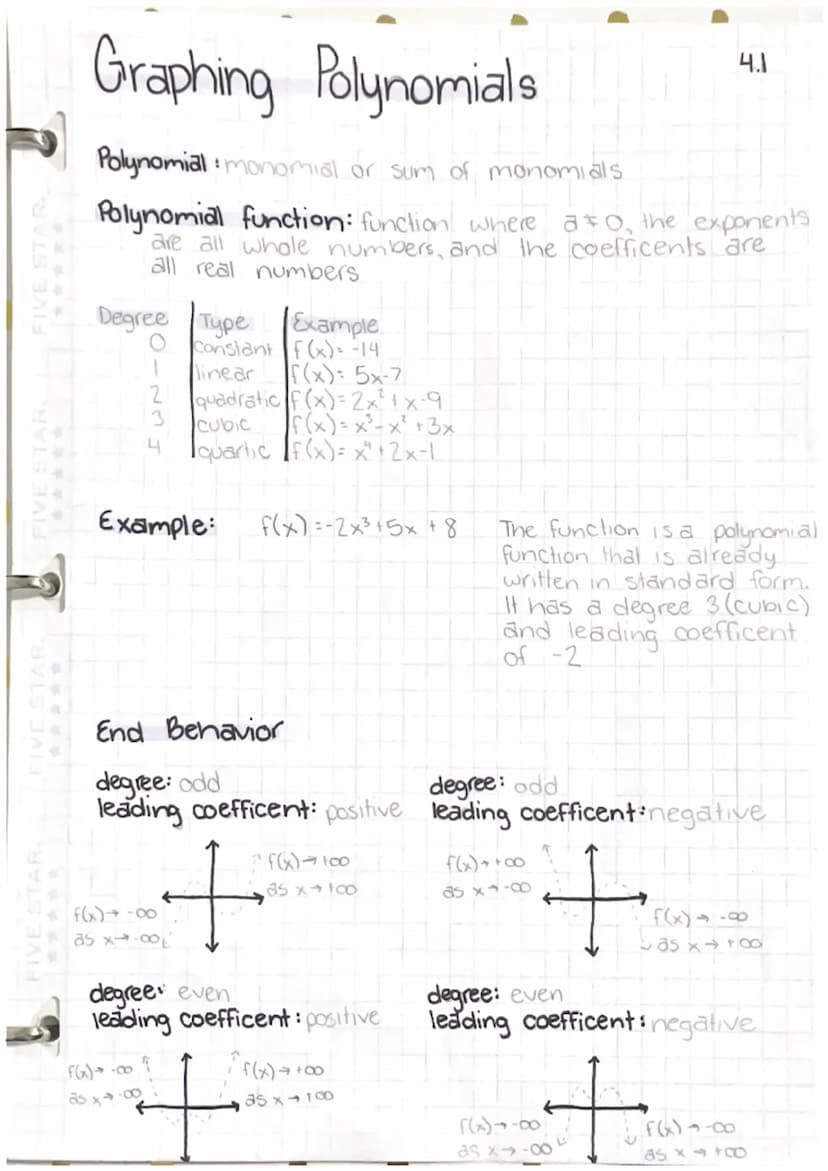 Graphing Polynomials
4.1
Polynomial: monomial or sum of monomials
Polynomial function: function where a≠0, the exponents
are all whole numbers, and the coefficents are
all real numbers
Degree Type Example
0 constant f(x)= -14
1 linear f(x)= 5x-7
2 quadratic f(x)= 2x²+x-9
3 cubic f(x)= x³-x²+3x
4 quartic f(x)= x⁴+2x-1
Example: f(x)=-2x³+5x+8
The function is a polynomial
function that is already
written in standard form.
It has a degree 3 (cubic)
and leading coefficent
of -2
End Behavior
degree: odd
leading coefficent: positive
f(x)→+∞
as x→+∞
f(x)→-∞
as x→-∞
degree: odd
leading coefficent: negative
f(x)→+∞
as x→-∞
f(x)→-∞
as x→+∞
degree: even
leading coefficent: positive
f(x)→-∞
as x→-∞
f(x)→+∞
as x→+∞
degree: even
leading coefficent: negative
f(x)→-∞
as x→-∞
f(x)→-∞
as x→+∞
FIVE STAR.
FIVE STAR.
FIVE STAR.
FIVE STAR.